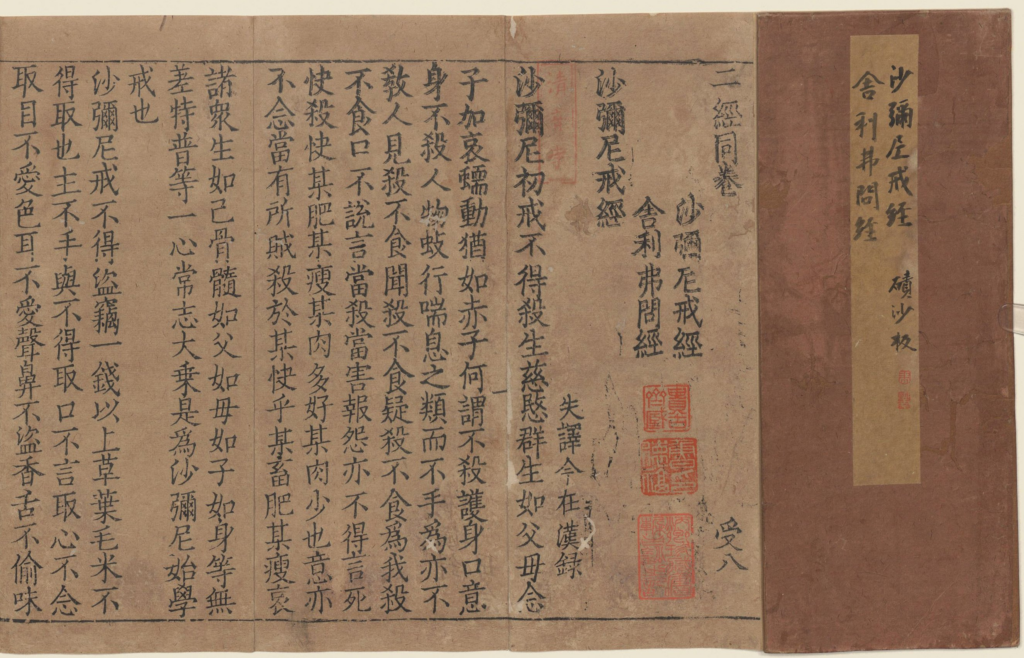 沙彌尼戒經 磧沙板
舍利弗問經
二經同卷 受八
沙彌尼戒經
舍利弗問經
沙彌尼戒經
失譯今在漢錄
沙彌尼初戒不得殺生慈愍群生如父母念
子加哀蠕動猶如赤子何謂不殺護身口意
身不殺人物蚑行喘息之類而不手爲亦不
教人見殺不食聞殺不食疑殺不食爲我殺
不食口不說言當殺當害報怨亦不得言死
快殺快某肥某瘦某肉多好某肉少也意亦
不念當有所賊殺於某快乎某畜肥某瘦哀
諸衆生如己骨髓如父如母如子如身等無
差特普等一心常志大乗是爲沙彌尼始學
戒也
沙彌尼戒不得盜竊一錢以上草葉毛米不
得取也主不手與不得取口不言取心不念
取目不愛色耳不愛聲鼻不盜香舌不偷味